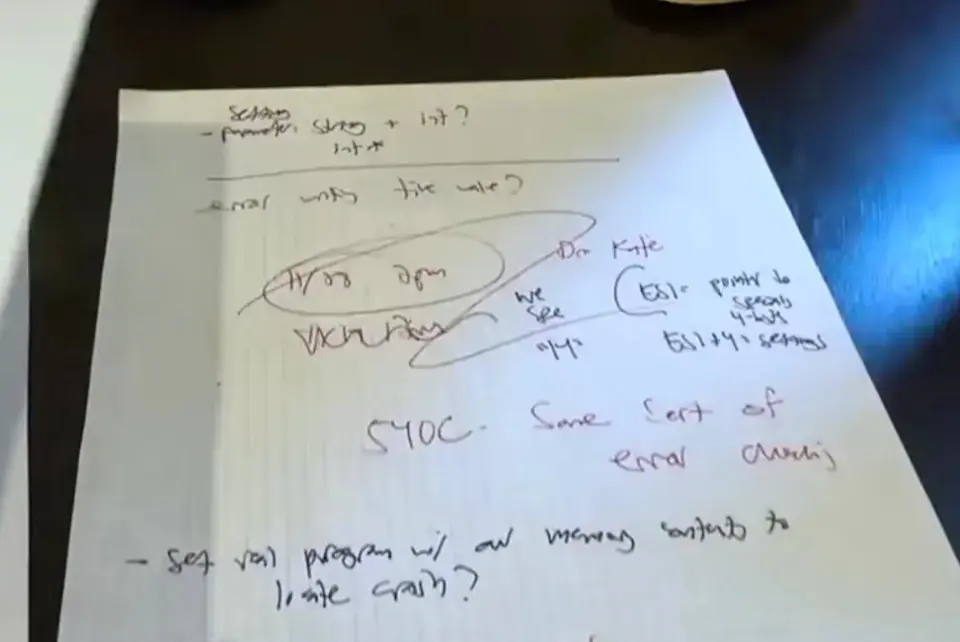 Setting
- parameter: string + int?
int *
error writing file value?
11/22 2pm
Dr. Kate
we
see
ESI = pointer to
specials
4-bytes
ESI+4 = settings
"y4"
540C - Some sort of
error checking
- Set val program w/ our memory contents to
locate crash?